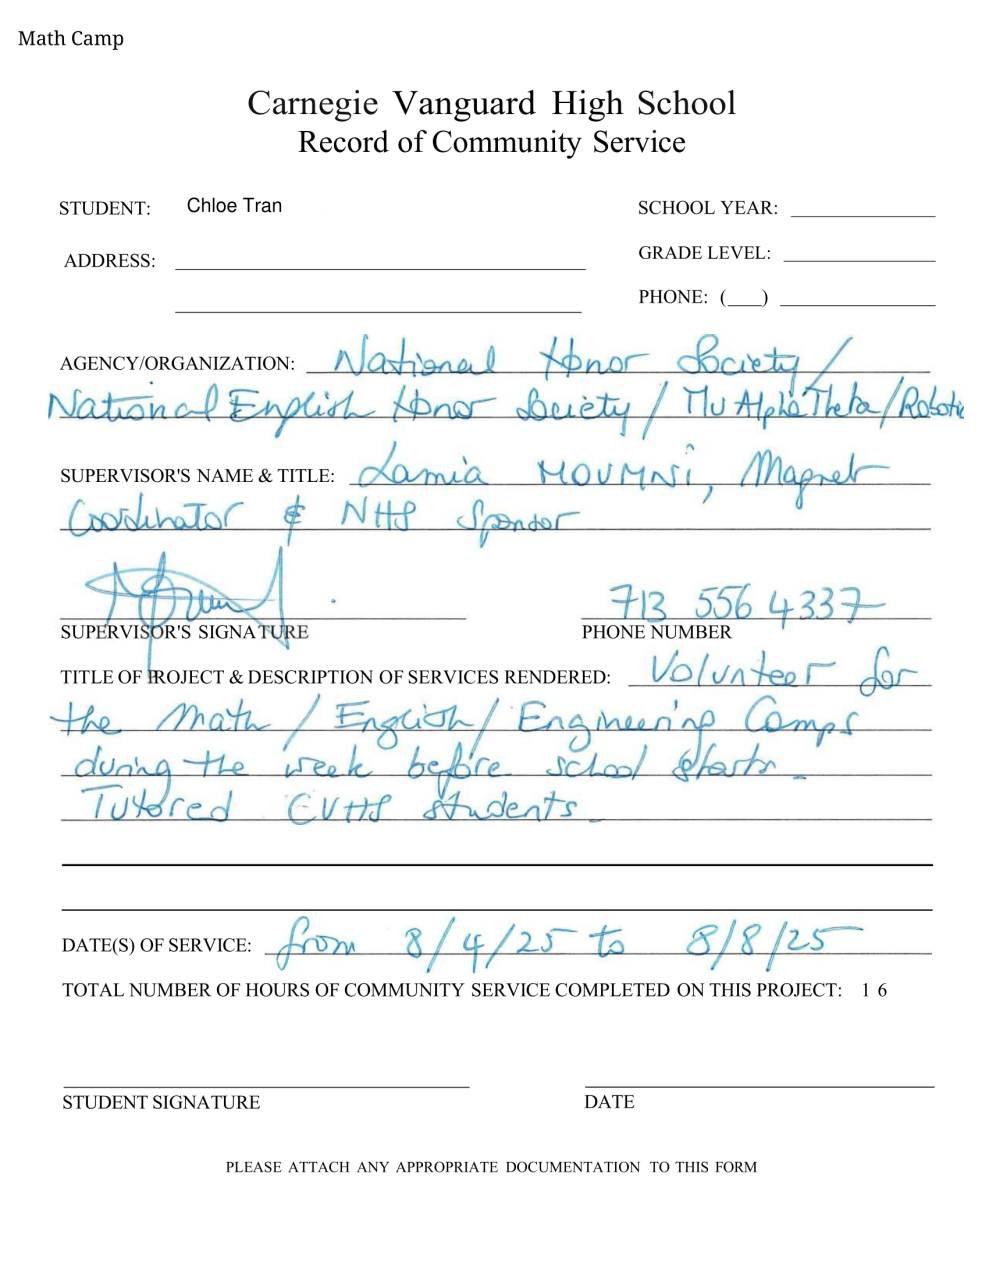 Math Camp
Carnegie Vanguard High School
Record of Community Service
STUDENT: Chloe Tran
SCHOOL YEAR:
ADDRESS:
GRADE LEVEL:
PHONE: (___)
AGENCY/ORGANIZATION: National Honor Society/
National English Honor Society / Mu Alpha Theta/Robotic
SUPERVISOR'S NAME & TITLE: Lamia MOUMNi, Magnet
Coordinator & NHS Sponsor
713 556 4337
SUPERVISOR'S SIGNATURE
PHONE NUMBER
TITLE OF PROJECT & DESCRIPTION OF SERVICES RENDERED: Volunteer for
the Math / English/ Engineering Camps
during the week before school starts.
Tutored CVHS students.
DATE(S) OF SERVICE: from 8/4/25 to 8/8/25
TOTAL NUMBER OF HOURS OF COMMUNITY SERVICE COMPLETED ON THIS PROJECT: 1 6
STUDENT SIGNATURE
DATE
PLEASE ATTACH ANY APPROPRIATE DOCUMENTATION TO THIS FORM